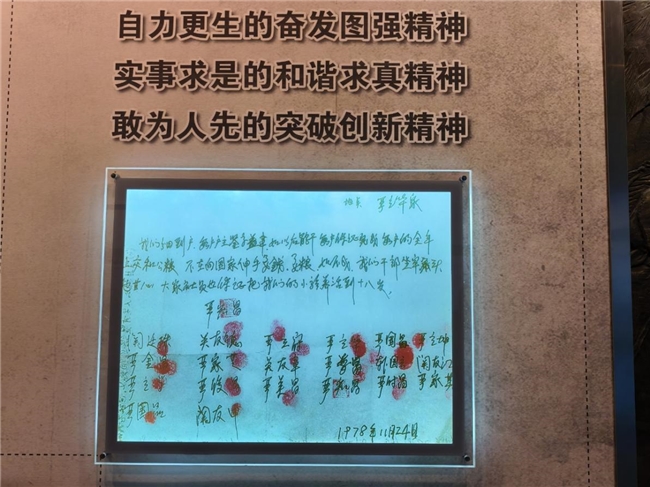 自力更生的奋发图强精神
实事求是的和谐求真精神
敢为人先的突破创新精神
地点 严立华家
我们分田到户 每户户主签字盖章 如以后能干 每户保证完成每户的全年
上交和公粮 不在向国家伸手要钱要粮 如不成 我们干部坐牢杀头
也甘心 大家社员也保证把我们的小孩养活到十八岁
严宏昌
关廷珠 关友德 严立富 严立华 严国昌 严立坤
严金昌 严家芝 关友章 严学昌 韩国云 关友江
严立学 严俊昌 严美昌 严付昌 严家其
严国品 关友申
1978年11月24日